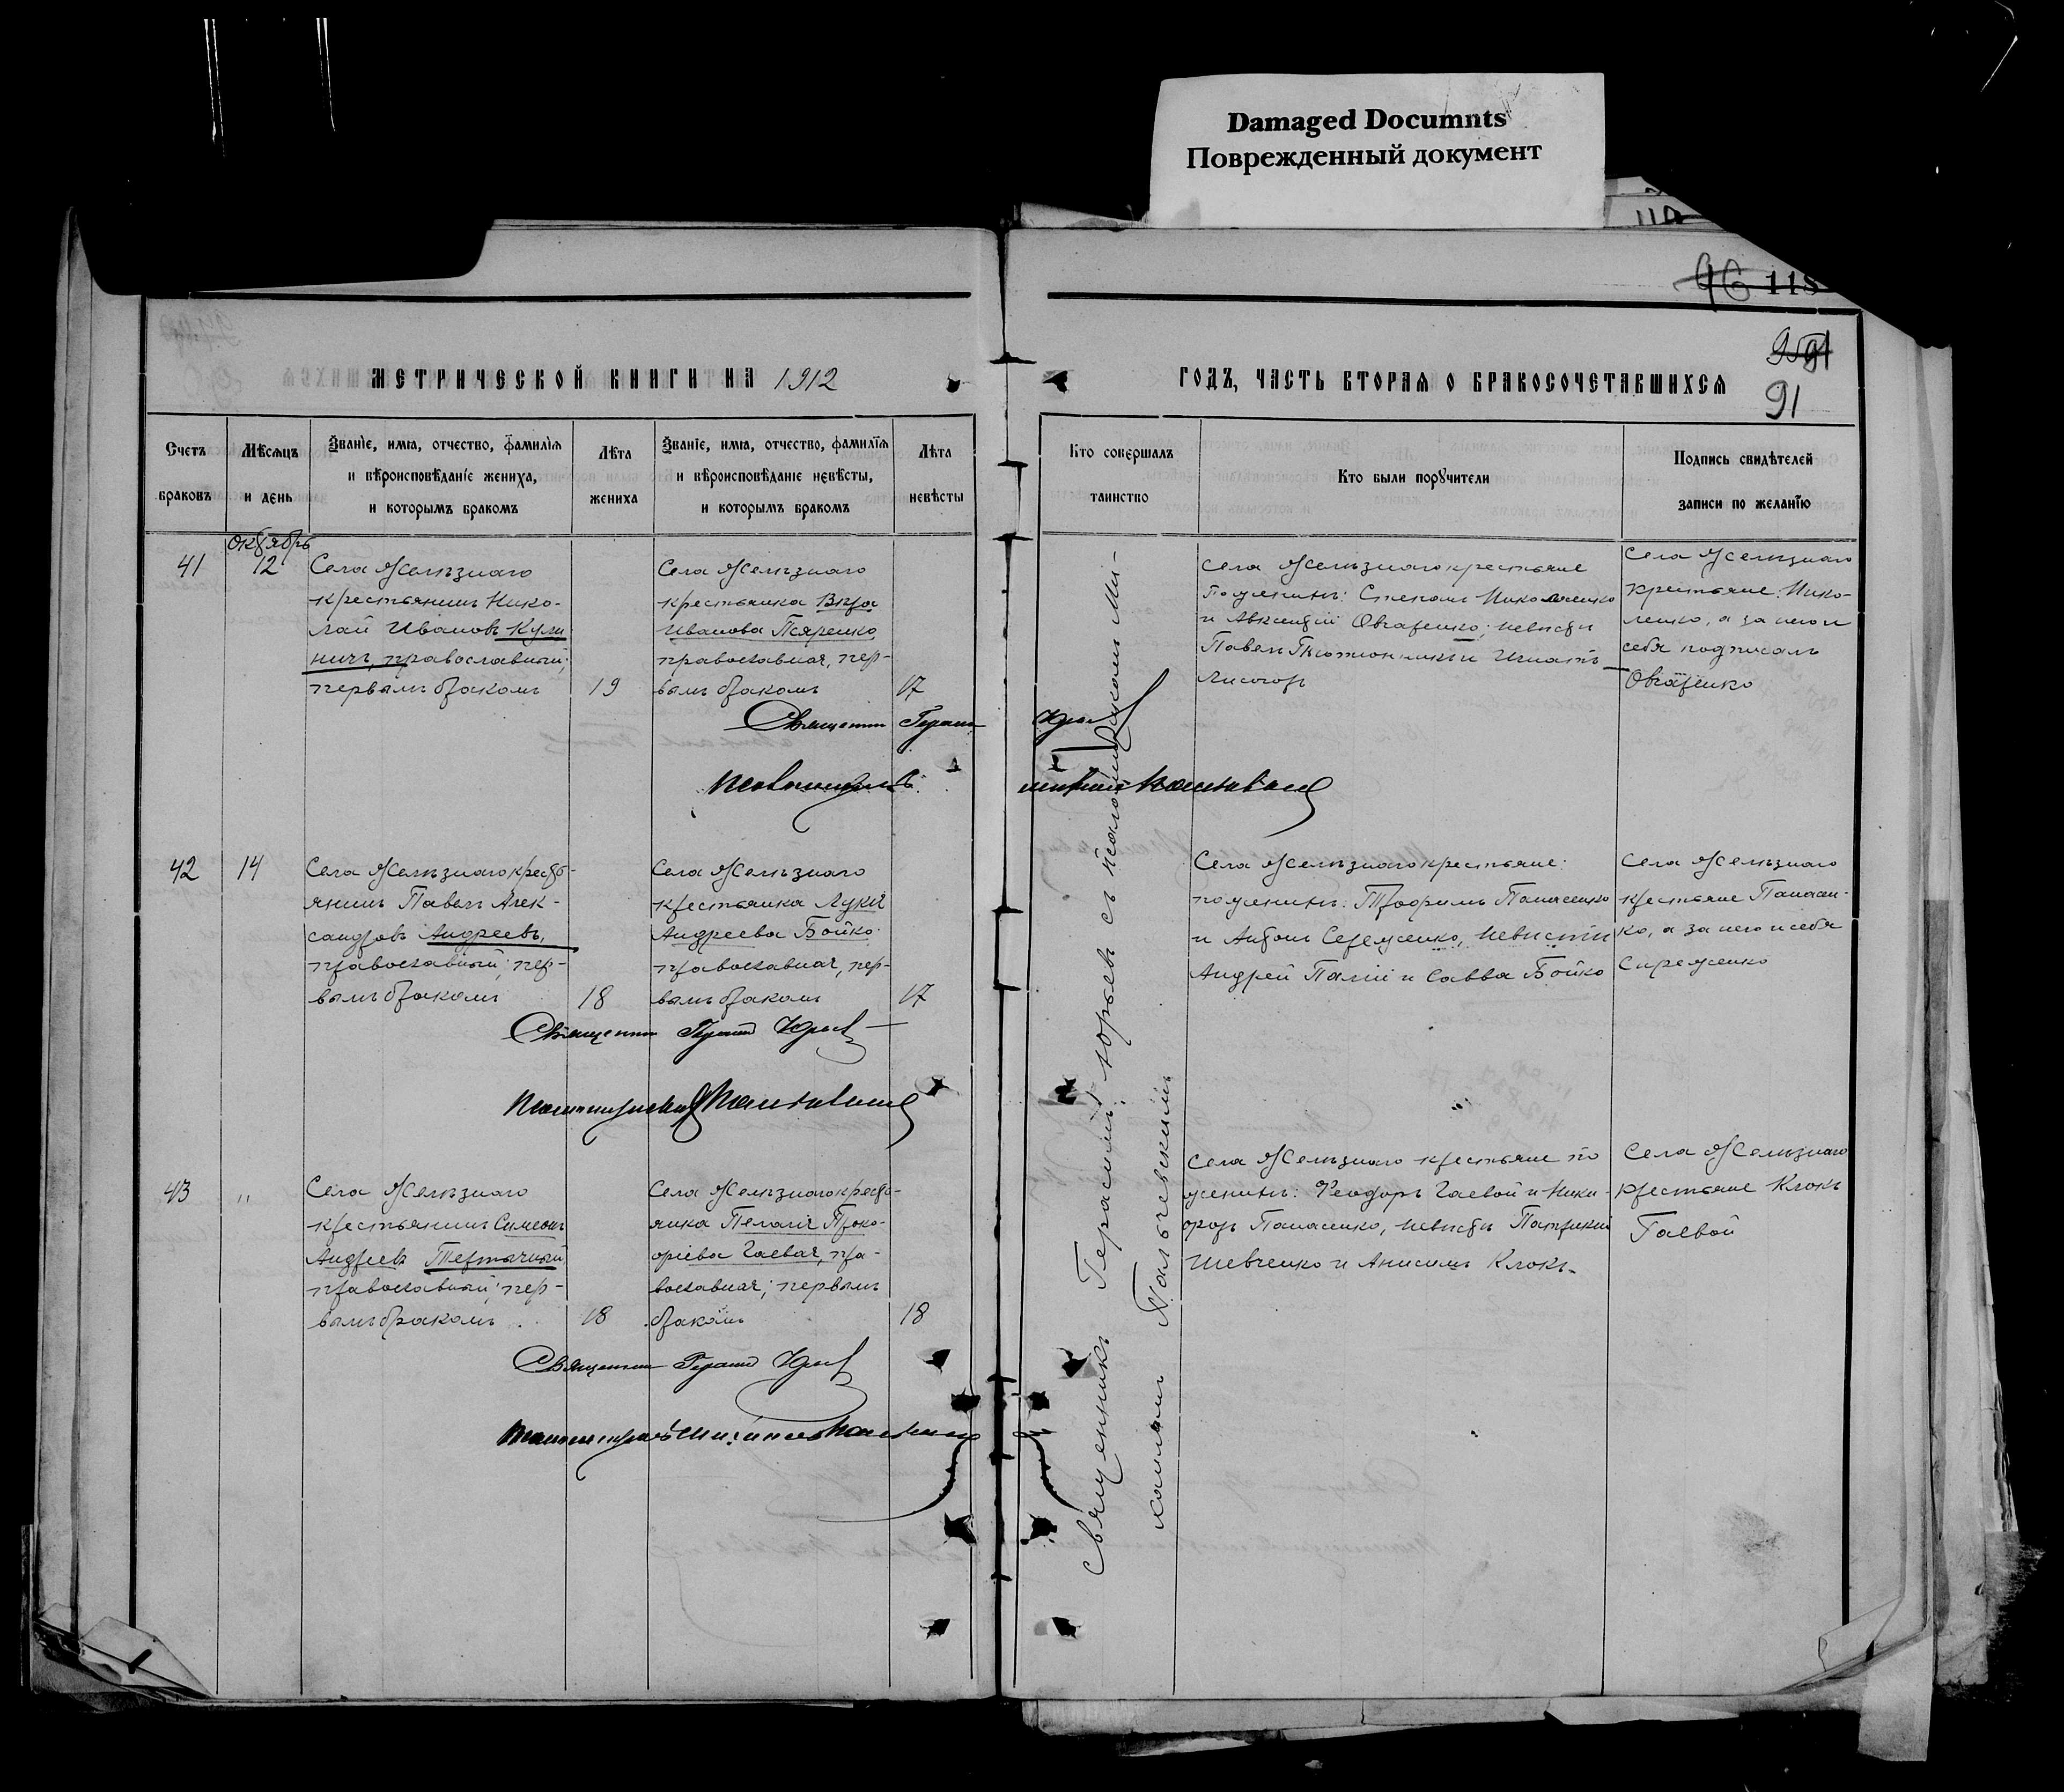 Damaged Documnts
Поврежденный документ
118
96
95
91
91
МЕТРИЧЕСКОЙ КНИГИ НА 1912
ГОДЪ, ЧАСТЬ ВТОРАЯ О БРАКОСОЧЕТАВШИХСЯ
Счетъ
браковъ
Мѣсяцъ
и день
Званіе, имя, отчество, фамилія
и вѣроисповѣданіе жениха,
и которымъ бракомъ
Лѣта
жениха
Званіе, имя, отчество, фамилія
и вѣроисповѣданіе невѣсты,
и которымъ бракомъ
Лѣта
невѣсты
Кто совершалъ
таинство
Кто были поручители
Подпись свидѣтелей
записи по желанію
41
Октябрь
12
Села Желѣзнаго
крестьянинъ Нико-
лай Ивановъ Кули
ничъ, православный;
первымъ бракомъ
19
Села Желѣзнаго
крестьянка Вѣра
Иванова Псяренко,
православная, пер-
вымъ бракомъ
17
Священникъ Герасимъ Юрьевъ
Села Желѣзнаго крестьяне
По женихѣ: Степанъ Николаенко
и Авксентій Овчаренко; невѣстѣ
Павелъ Тютюнникъ и Игнатъ
Лисогоръ
Села Желѣзнаго
крестьяне: Нико-
ленко, а за него и
себя подписалъ
Овчаренко
42
14
Села Желѣзнаго кресть-
янинъ Павелъ Алек-
сандровъ Андреевъ,
православный; пер-
вымъ бракомъ
18
Села Желѣзнаго
крестьянка Лукія
Андреева Бойко
православная, пер-
вымъ бракомъ
17
Священникъ Герасимъ Юрьевъ
Села Желѣзнаго крестьяне:
по женихѣ: Трофимъ Панасенко
и Антонъ Сереженко, невѣстѣ
Андрей Палій и Савва Бойко
Села Желѣзнаго
крестьяне Панасен-
ко, а за него и себя
Сиреженко
43
"
Села Желѣзнаго
крестьянинъ Симеонъ
Андреевъ Тертычный
православный; пер-
вымъ бракомъ
18
Села Желѣзнаго кресть-
янка Пелагія Проко-
фіева Гаевая, пра-
вославная; первымъ
бракомъ
18
Священникъ Герасимъ Юрьевъ
Села Желѣзнаго крестьяне по
женихѣ: Феодоръ Гаевой и Ники-
форъ Панасенко, невѣстѣ Патрикій
Шевченко и Анисимъ Клокъ
Села Желѣзнаго
крестьяне Клокъ
Гаевой
Священникъ Герасимъ Юрьевъ съ псаломщикомъ Ми-
хаиломъ Пальчевскимъ